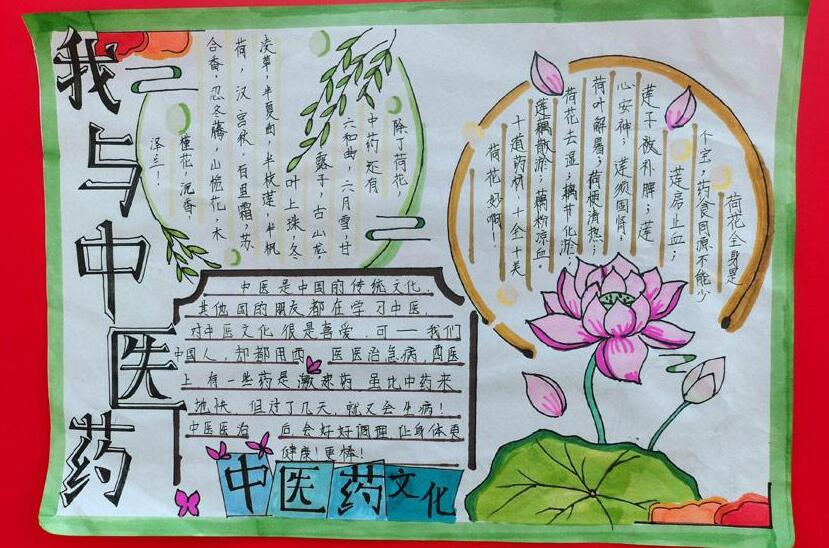 我与中医药
荷花全身是
个宝，药食同源不能少
莲房止血；
莲子被补脾；莲
心安神；莲须固肾；
荷叶解暑；荷梗清热；
荷花去湿；藕节化淤；
莲藕散淤；藕粉凉血。
十道药材，十全十美
荷花妙啊！
除了荷花，
中药还有
六和曲，六月雪，甘
露子，古山龙
叶上珠，冬
凌草，半夏曲，半枝莲，半帆
荷，汉宫秋，百里霜，苏
合香，忍冬藤，山栀花，木
槿花，沉香，
泽兰！
中医是中国的传统文化，
其他国的朋友都在学习中医，
对中医文化很是喜爱，可一我们
中国人，却都用西 医医治急病，西医
上有一些药是激起药 虽比中药来
地快 但过了几天，就又会生病！
中医医治 后会好好调理让身体更
健康！更棒！
中医药文化